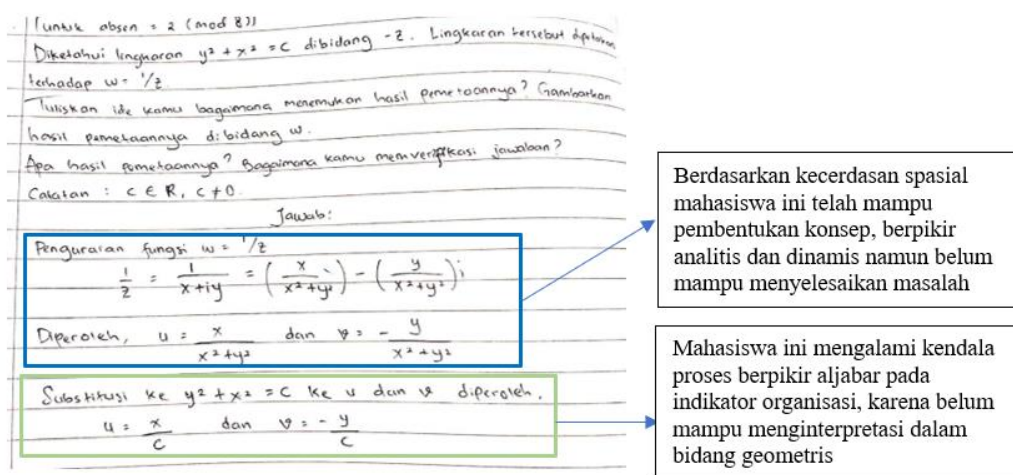 (untuk absen = 2 (mod 8))
Diketahui lingkaran y² + x² = c dibidang -z. Lingkaran tersebut dipetakan
terhadap w = 1/z.
Tuliskan ide kamu bagaimana menemukan hasil pemetaannya? Gambarkan
hasil pemetaannya dibidang w.
Apa hasil pemetaannya? Bagaimana kamu memverifikasi jawaban?
Catatan : c ∈ R, c ≠ 0.
Jawab:
Penguraian fungsi w = 1/z
1/z = 1/(x+iy) = (x/(x²+y²)) - (y/(x²+y²))i
Diperoleh, u = x/(x²+y²) dan v = - y/(x²+y²)
Substitusi ke y² + x² = c ke u dan v diperoleh,
u = x/c dan v = - y/c
Berdasarkan kecerdasan spasial
mahasiswa ini telah mampu
pembentukan konsep, berpikir
analitis dan dinamis namun belum
mampu menyelesaikan masalah
Mahasiswa ini mengalami kendala
proses berpikir aljabar pada
indikator organisasi, karena belum
mampu menginterpretasi dalam
bidang geometris